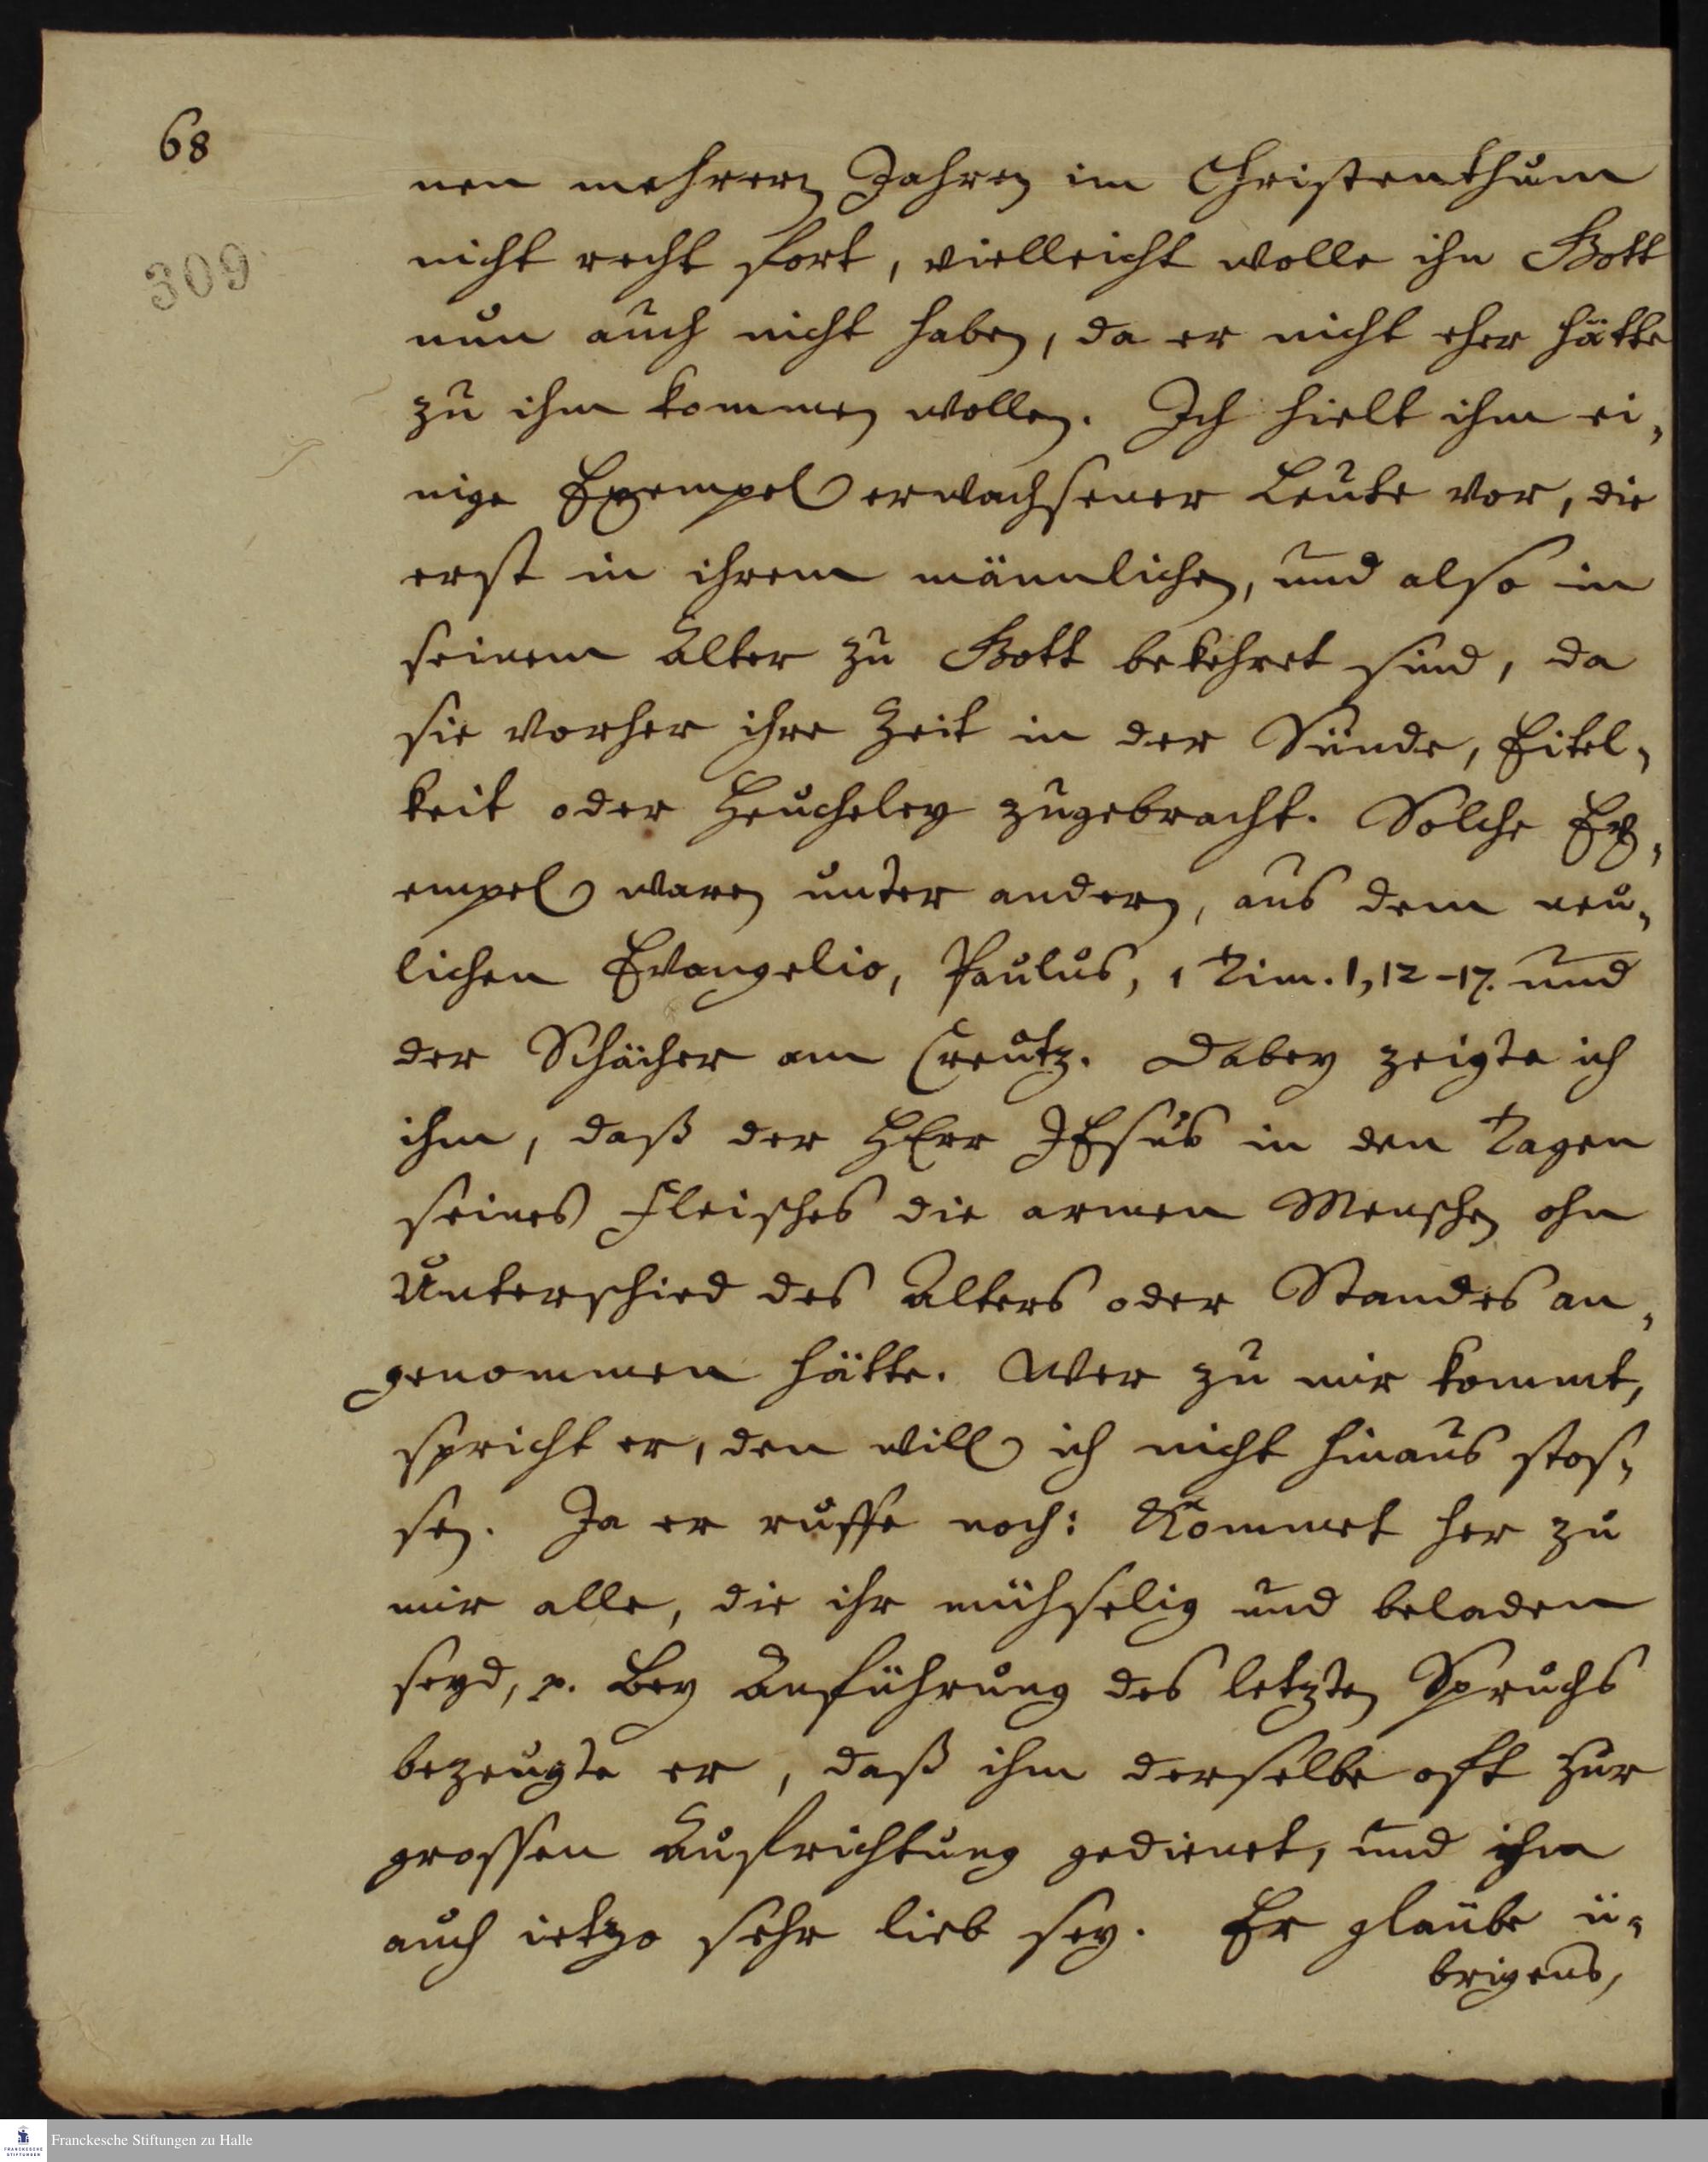 68
309
nen mehrern Jahren im Christenthum
nicht recht fort, vielleicht wolle ihn Gott
nun auch nicht haben, da er nicht eher hätte
zu ihm kommen wollen. Ich hielt ihm ei-
nige Exempel erwachsener Leute vor, die
erst in ihrem männlichen, und also in
seinem Alter zu Gott bekehret sind, da
sie vorher ihre Zeit in der Sünde, Eitel-
keit oder Heucheley zugebracht. Solche Ex-
empel waren unter andern, aus dem neu-
lichen Evangelio, Paulus, 1 Tim. 1, 12-17. und
der Schächer am Creutz. Dabey zeigte ich
ihm, daß der HErr JEsus in den Tagen
seines Fleisches die armen Menschen ohn
Unterschied des Alters oder Standes an-
genommen hätte. Wer zu mir kommt,
spricht er, den will ich nicht hinaus stos-
sen. Ja er ruffe noch: Kommet her zu
mir alle, die ihr mühselig und beladen
seyd, p. Bey Anführung des letzten Spruchs
bezeugte er, daß ihm derselbe oft zur
grossen Aufrichtung gedienet, und ihm
auch ietzo sehr lieb sey. Er glaube ü-
brigens,
Franckesche Stiftungen zu Halle